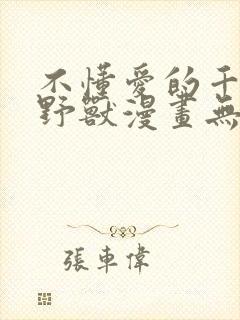 不懂愛的千
野獸漫畫無
張車偉